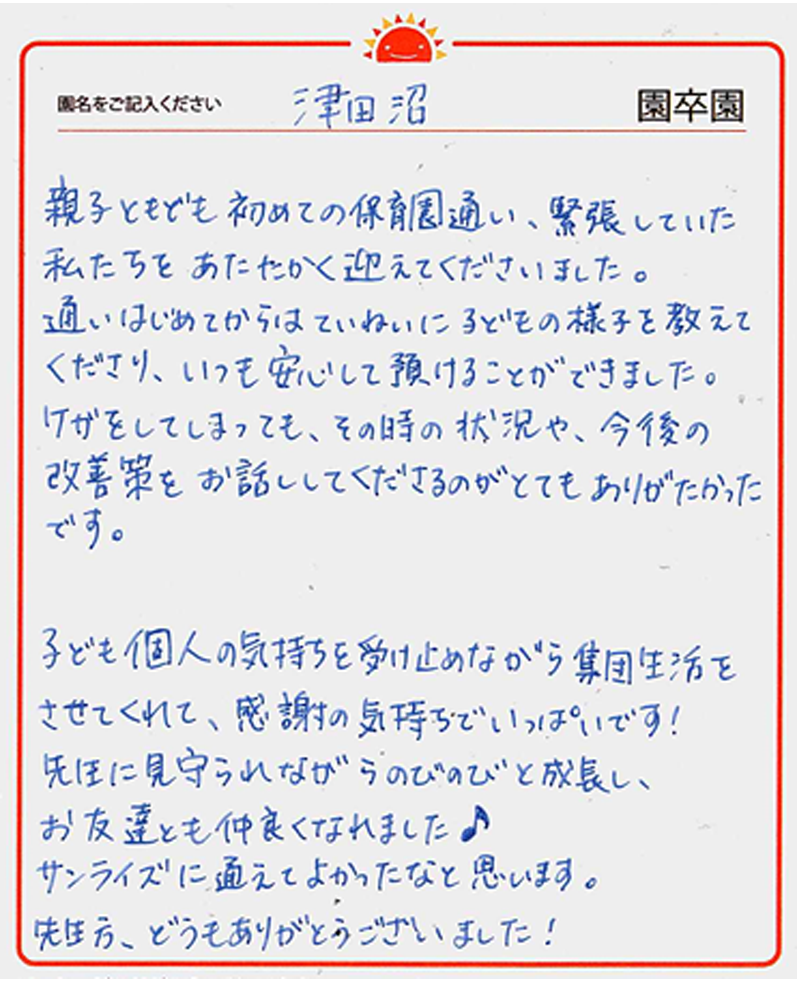 園名をご記入ください 津田沼 園卒園
親子ともども初めての保育園通い、緊張していた
私たちを あたたかく迎えてくださいました。
通いはじめてからはていねいに子どもの様子を教えて
くださり、いつも安心して預けることができました。
ケガをしてしまっても、その時の状況や、今後の
改善策を お話ししてくださるのがとてもありがたかった
です。
子ども個人の気持ちを受け止めながら集団生活を
させてくれて、感謝の気持ちでいっぱいです!
先生に見守られながらのびのびと成長し、
お友達とも仲良くなれました♪
サンライズに通えてよかったなと思います。
先生方、どうもありがとうございました!